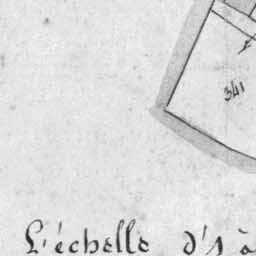 341
L'échelle d'1 à